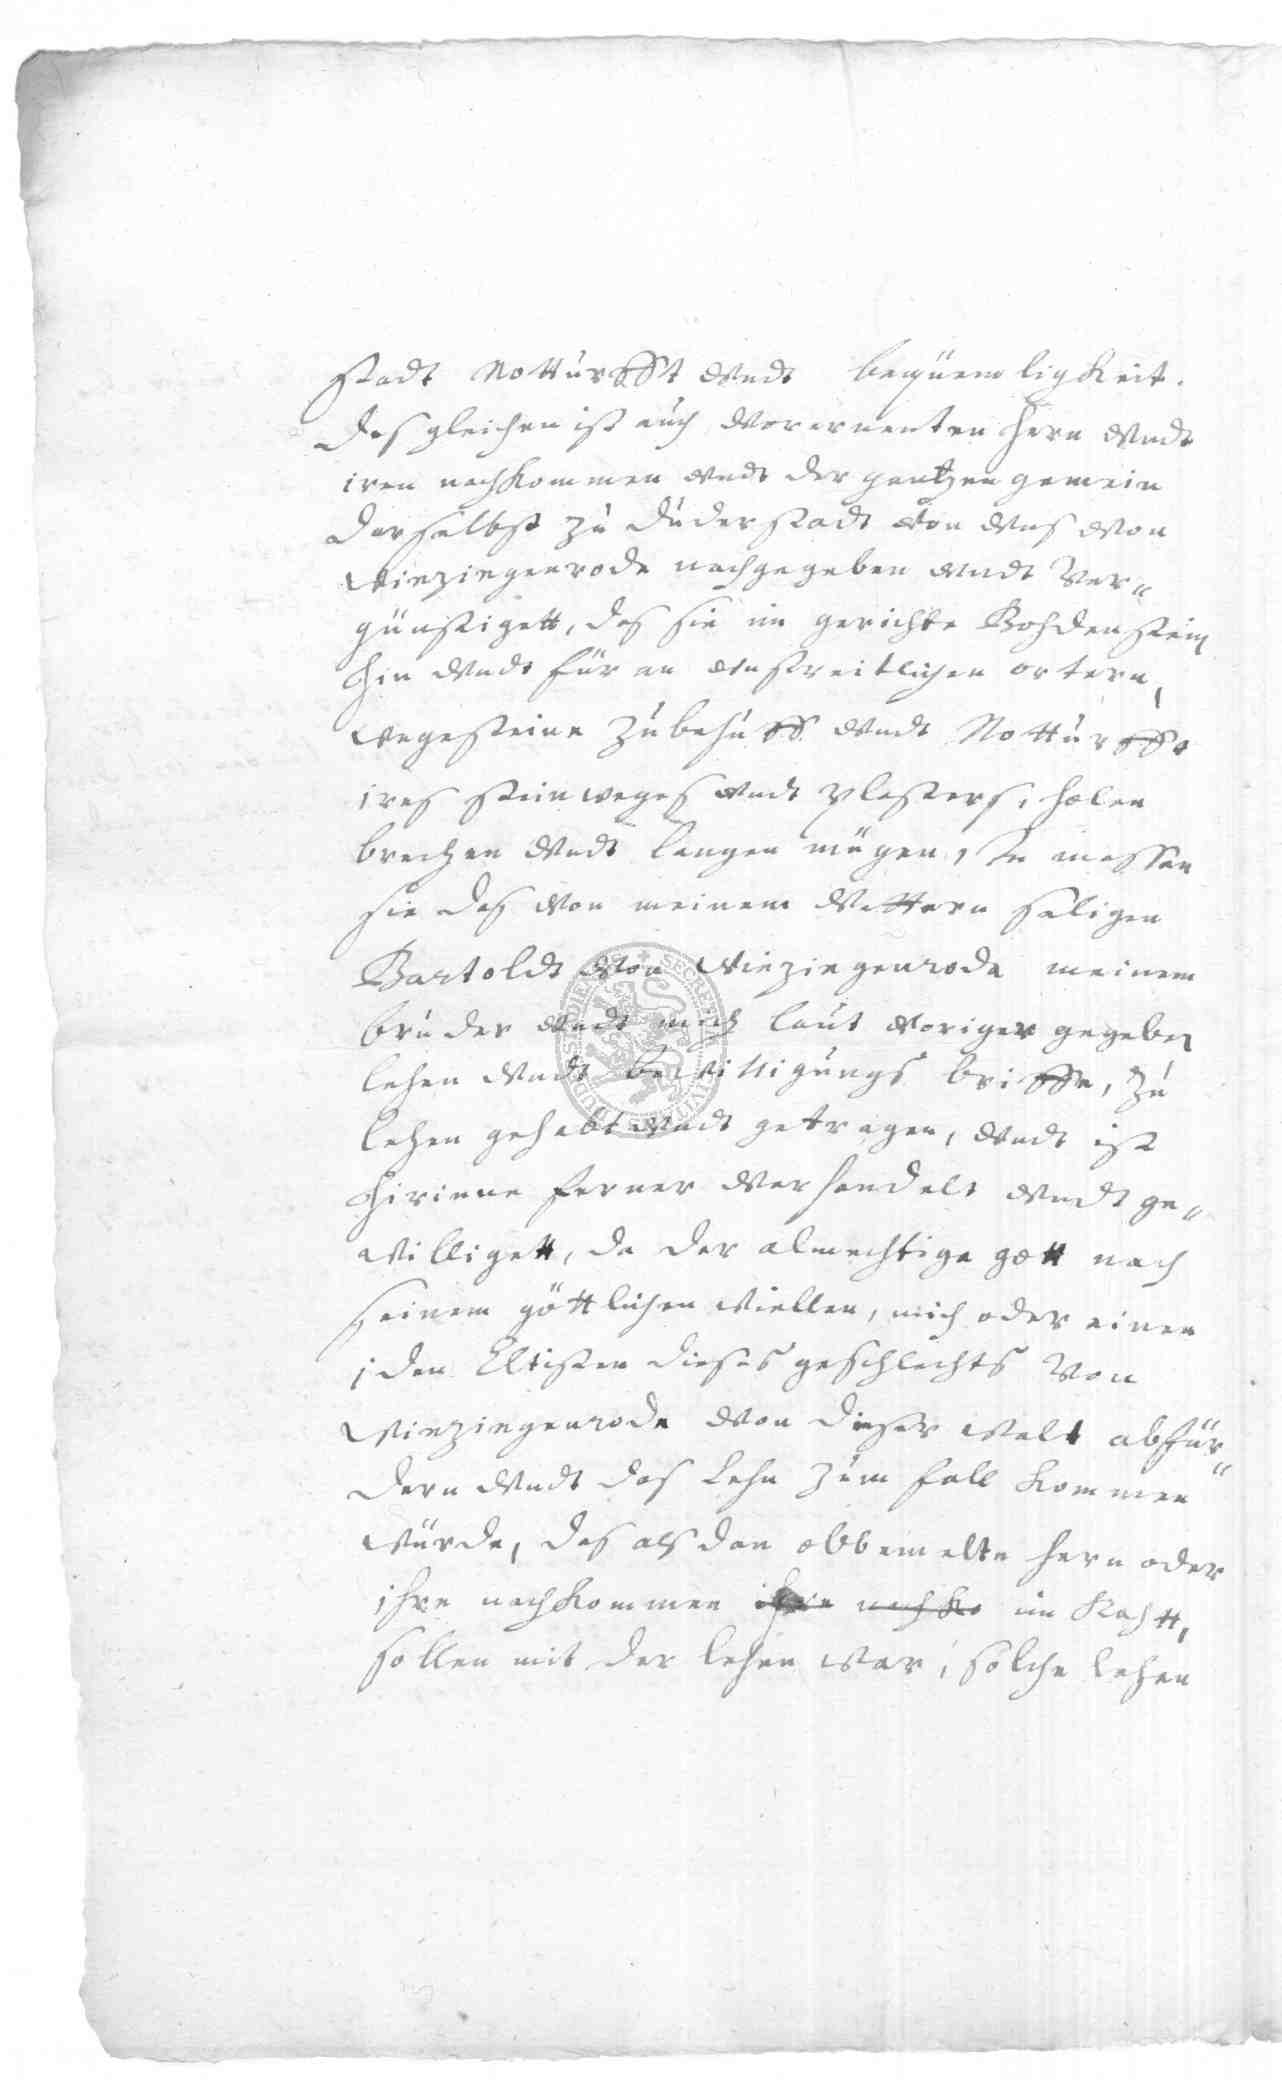 stadt Notturfft vndt bequemligkeit.
Desgleichen ist auch vorernenten hern vndt
iren nachkommen vndt der gantzen gemein
darselbst zu Duderstadt von vns von
Winzingenrode nachgegeben vndt Ver=
günstigett, das sie im gerichte Bohdenstein
hin vndt für an vnstreitlichen ortern,
wegesteine zubehuff vndt Notturfft
ires steinweges vndt plasters, holen
brechen vndt langen mügen, In massen
sie das von meinem Vettern seligen
Bartoldt von Winzingenrode meinem
bruder vndt mich laut voriger gegeben
lehen vndt bewilligungs briffe, zu
lehen gehabt vndt getragen, vndt ist
hirinne ferner verhandelt vndt ge=
willigett, da der almechtige gott nach
seinem göttlichen willen, mich oder einen
iden Eltisten dieses geschlechts Von
Winzingenrode von dieser welt abfür=
dern vndt das Lehn zum fall kommen
würde, das als dan obbemelte hern oder
ihre nachkommen ihre nachko im Rahtt,
sollen mit der lehen war, solche lehen
SECRET CIVITATIS DUDERSTADIENSIS